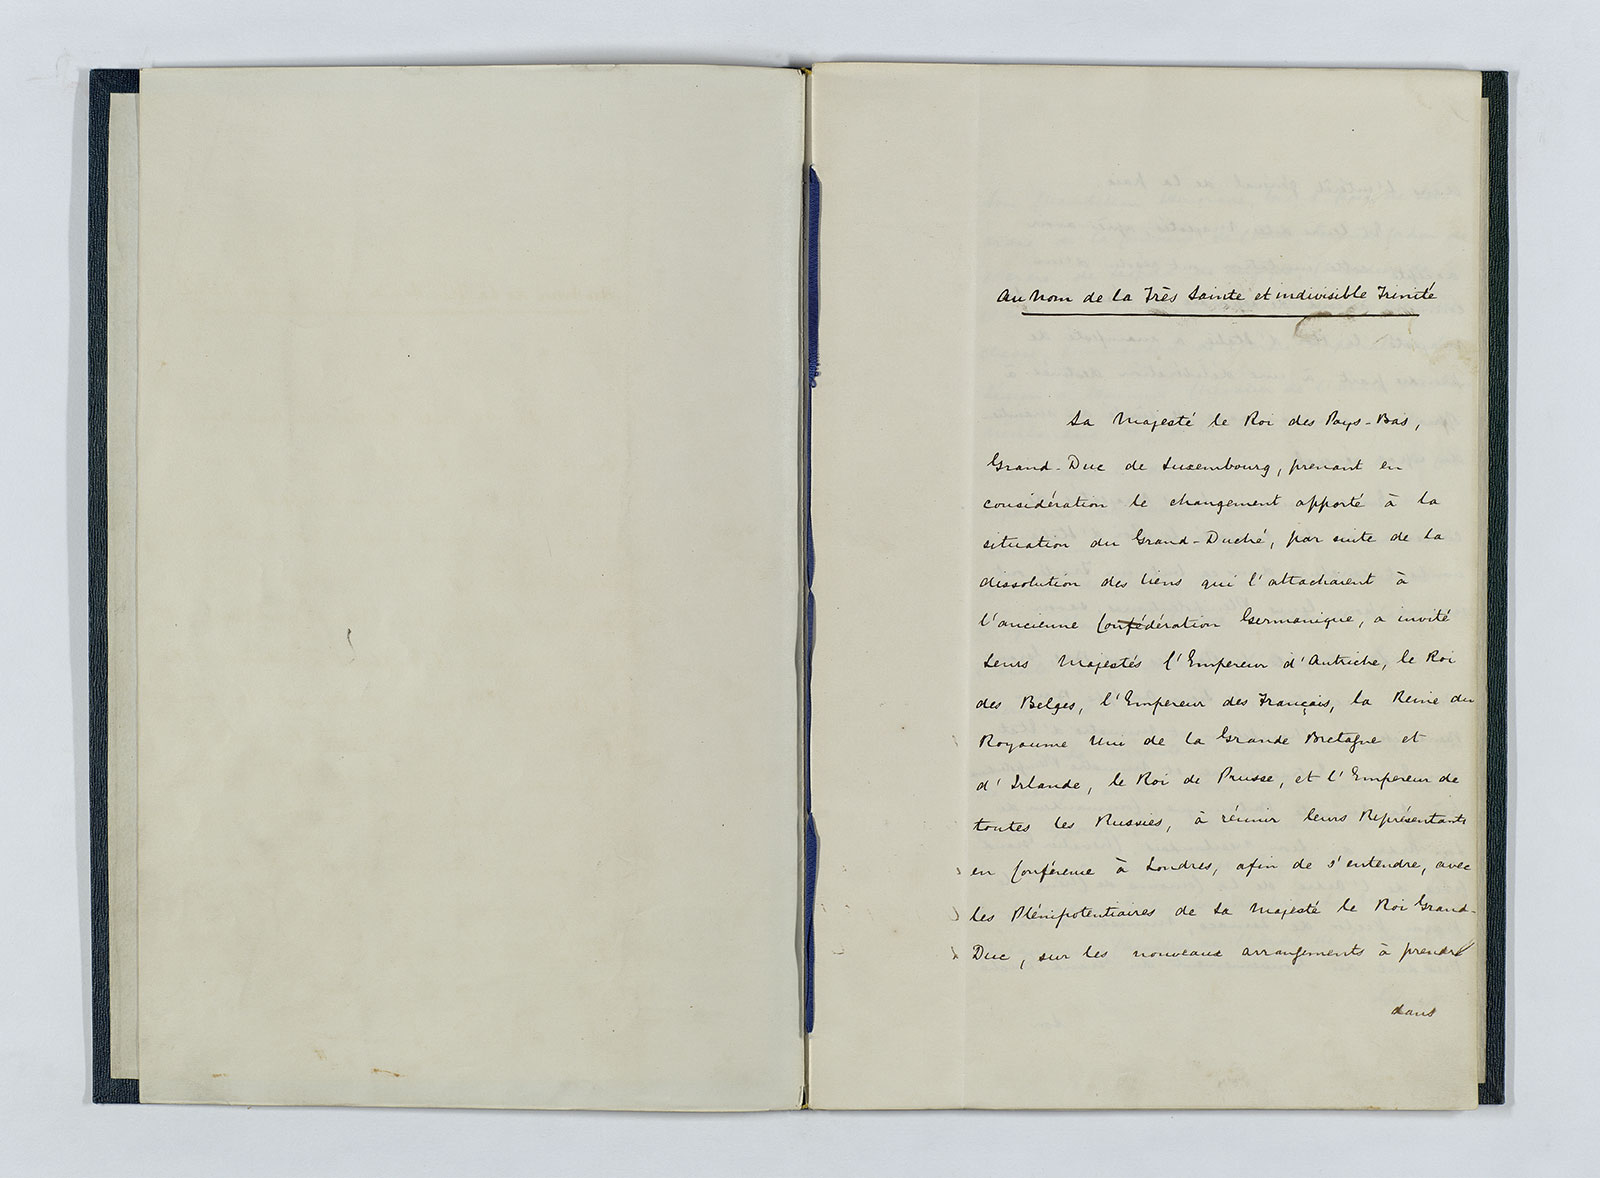 Au Nom de la Très Sainte et indivisible Trinité
Sa Majesté le Roi des Pays-Bas,
Grand-Duc de Luxembourg, prenant en
considération le changement apporté à la
situation du Grand-Duché, par suite de la
dissolution des liens qui l'attachaient à
l'ancienne Confédération Germanique, a invité
Leurs Majestés l'Empereur d'Autriche, le Roi
des Belges, l'Empereur des Français, la Reine du
Royaume Uni de la Grande Bretagne et
d'Irlande, le Roi de Prusse, et l'Empereur de
toutes les Russies, à réunir leurs Représentants
en Conférence à Londres, afin de s'entendre, avec
les Plénipotentiaires de Sa Majesté le Roi Grand-
Duc, sur les nouveaux arrangements à prendre
dans